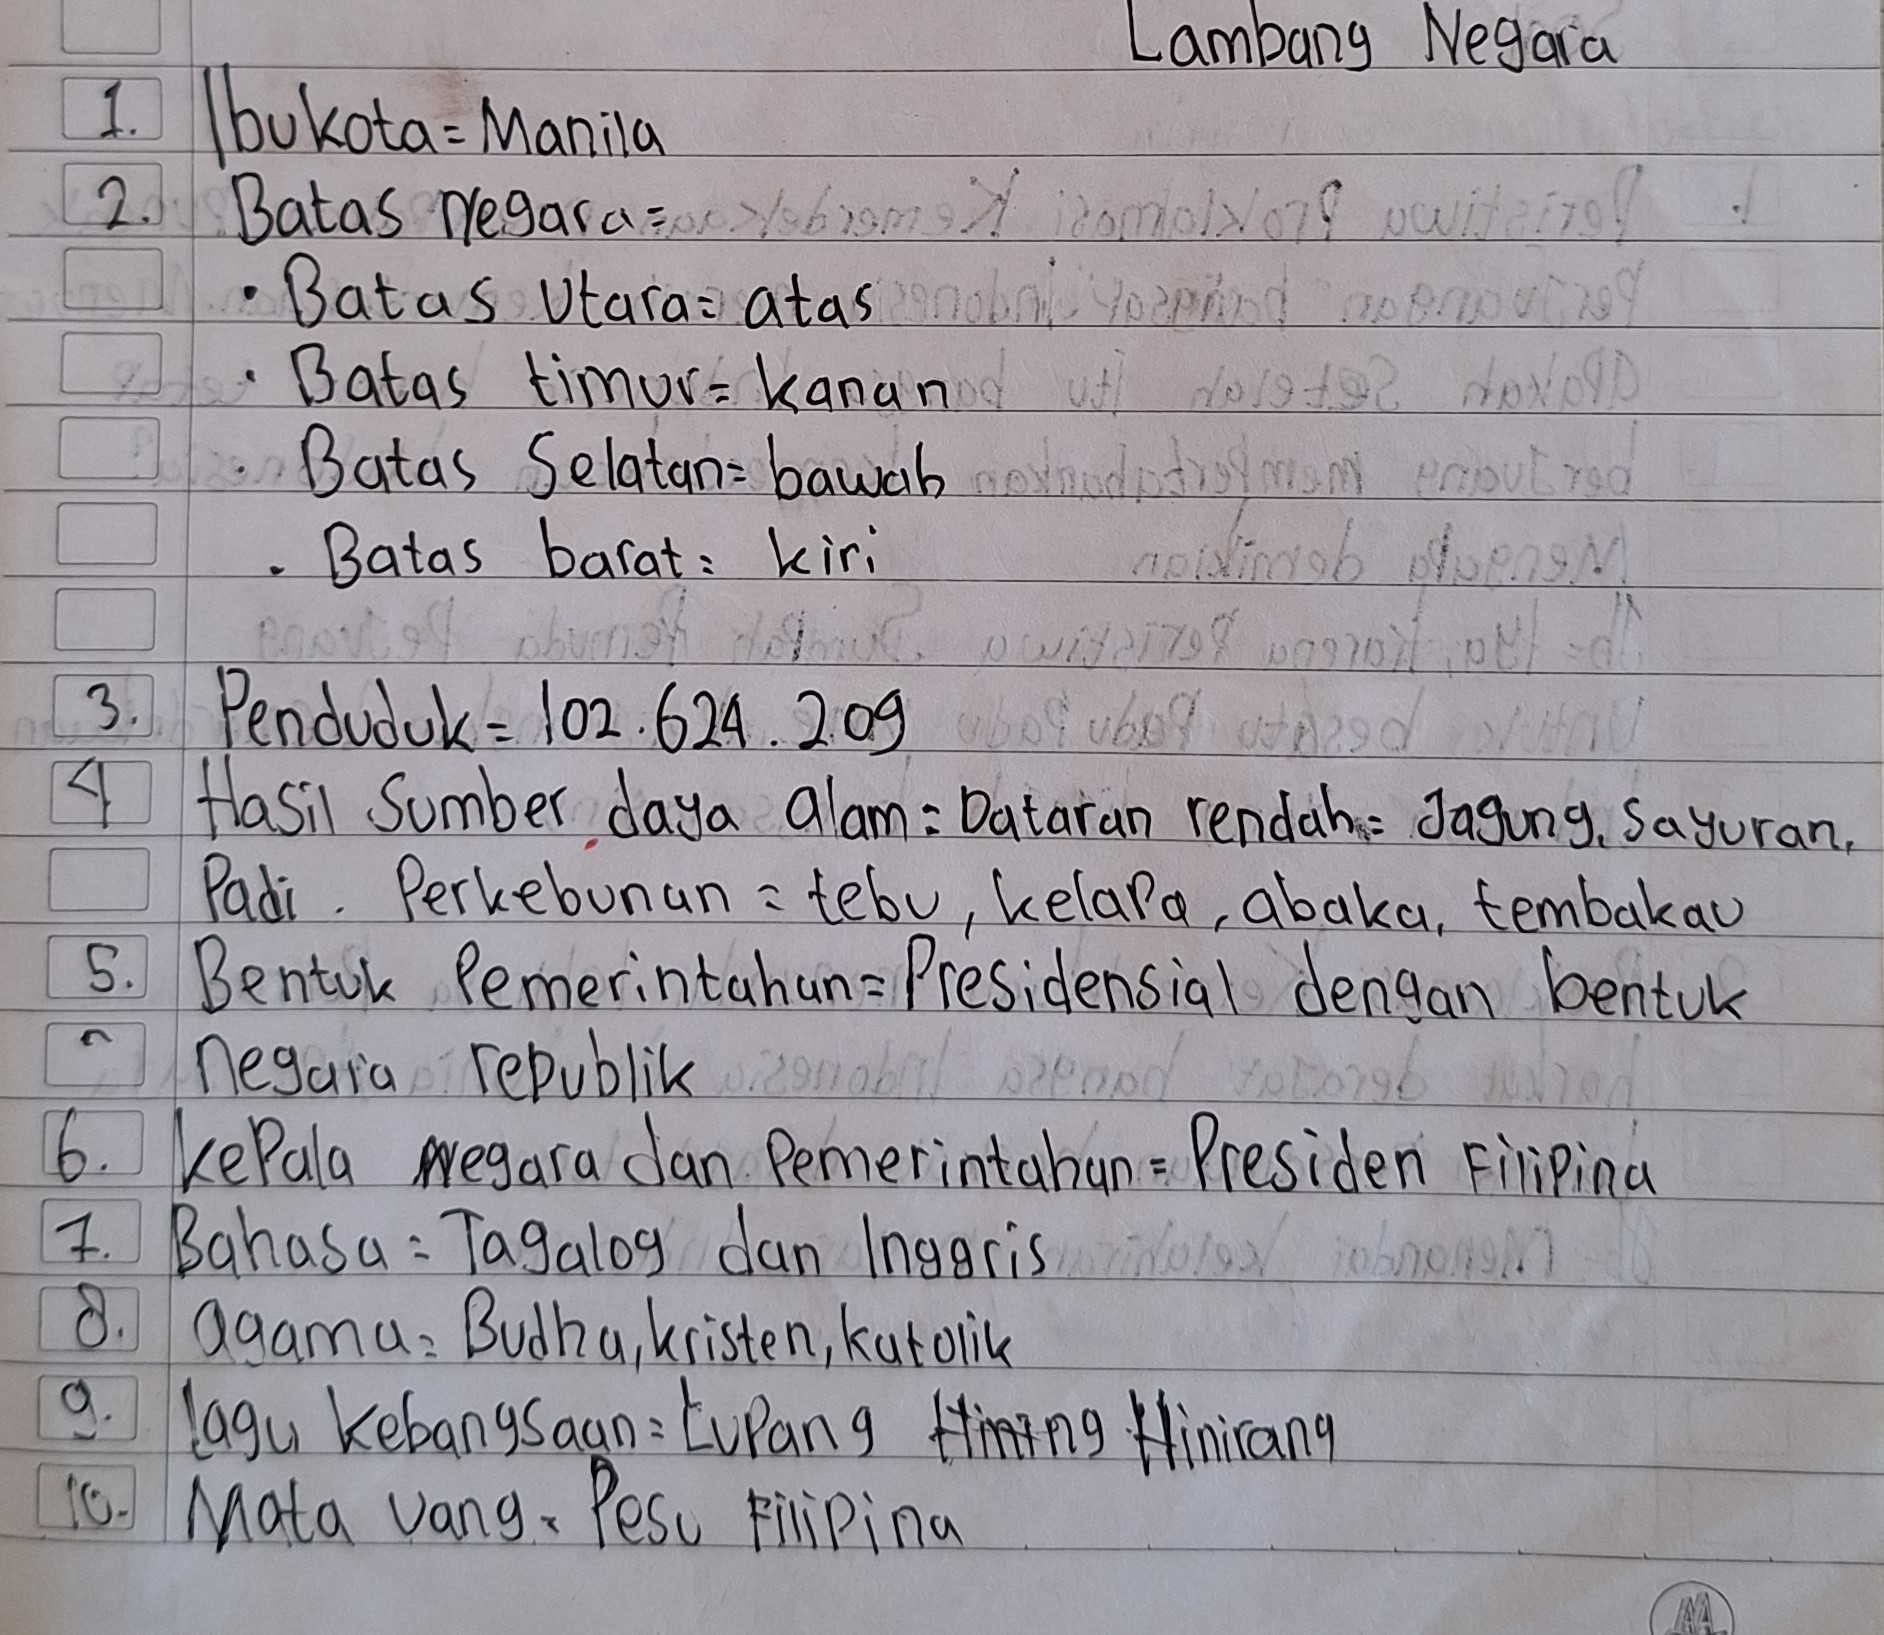 Lambang Negara
1. Ibukota = Manila
2. Batas Negara =
• Batas Utara = atas
• Batas timur = kanan
• Batas Selatan = bawah
• Batas barat = kiri
3. Penduduk = 102.624.209
4 Hasil Sumber daya alam = Dataran rendah = Jagung, Sayuran,
Padi. Perkebunan = tebu, kelapa, abaka, tembakau
5. Bentuk Pemerintahan = Presidensial dengan bentuk
negara republik
6. kepala Negara dan Pemerintahan = Presiden Filipina
7. Bahasa = Tagalog dan Inggris
8. agama = Budha, kristen, katolik
9. lagu kebangsaan = Lupang Hining Hinirang
10. Mata uang = Peso Filipina